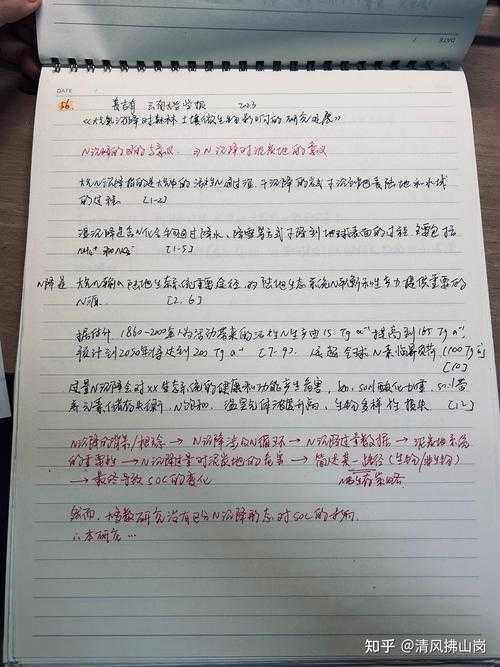 DATE
DATE
56 云南大学学报 2023
《大气N沉降对森林土壤微生物影响的研究进展》
N沉降的目的与意义, N沉降对泥炭地的意义
大气N沉降指的是大气中的活性N通过湿、干沉降的方式下沉到地表陆地和水域
的过程. [1-2]
湿沉降是含N化合物通过降水、降雪等方式下降到地球表面的过程, 主要包括
NH₄⁺ 和 NO₃⁻ [1-5]
N沉降是 大气N输入陆地生态系统重要途径, 为陆地生态系统N和生产力提供重要的
N源. [2.6]
据估计 1860-2000年人为活动带来的活性N生产由15 Tg a⁻¹ 提高到165 Tg a⁻¹,
预计到2050年将达到200 Tg a⁻¹ [7-9]. 远超全球N素临界负荷 (100 Tg a⁻¹)
[10]
过量N沉降会对xx生态系统的健康和功能产生危害, 如, soil酸化加剧, soil营
养元素储存失衡, N饱和, 温室气体浓度升高, 生物多样性损失 [12]
N沉降的背景/概论 → N沉降涉及N循环 → N沉降过量数据 → 泥炭地系统
的重要性 → N沉降过量对泥炭地的危害 → 简述某一路径(生物/非生物)
→ 最终导致SOC的变化 策略
然而, 大多数研究没有区分N沉降形态对SOC的影响.
∴本研究…
知乎 @清风拂山岗